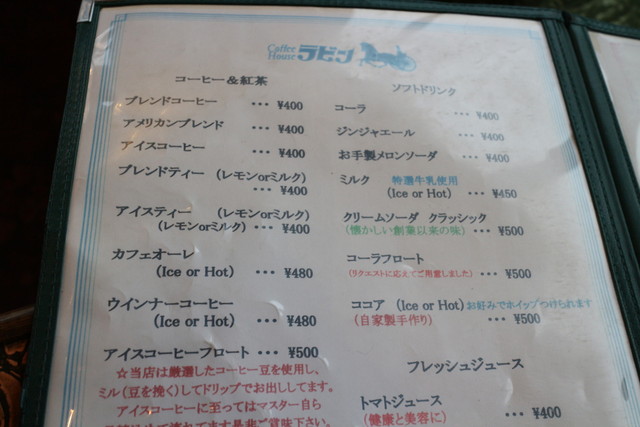 Coffee House ラビン
コーヒー＆紅茶
ブレンドコーヒー ・・・ ¥400
アメリカンブレンド ・・・ ¥400
アイスコーヒー ・・・ ¥400
ブレンドティー （レモンorミルク）
・・・ ¥400
アイスティー （レモンorミルク）
（レモンorミルク）・・・ ¥400
カフェオーレ
（Ice or Hot） ・・・ ¥480
ウインナーコーヒー
（Ice or Hot） ・・・ ¥480
アイスコーヒーフロート ・・・ ¥500
☆当店は厳選したコーヒー豆を使用し、
ミル（豆を挽く）してドリップでお出ししてます。
アイスコーヒーに至ってはマスター自ら
ソフトドリンク
コーラ ・・・ ¥400
ジンジャエール ・・・ ¥400
お手製メロンソーダ ・・・ ¥400
ミルク 特選牛乳使用
（Ice or Hot） ・・・ ¥450
クリームソーダ クラッシック
（懐かしい創業以来の味） ・・・ ¥500
コーラフロート
（リクエストに応えてご用意しました） ・・・ ¥500
ココア （Ice or Hot）お好みでホイップつけられます
（自家製手作り） ・・・ ¥500
フレッシュジュース
トマトジュース
（健康と美容に） ・・・ ¥400